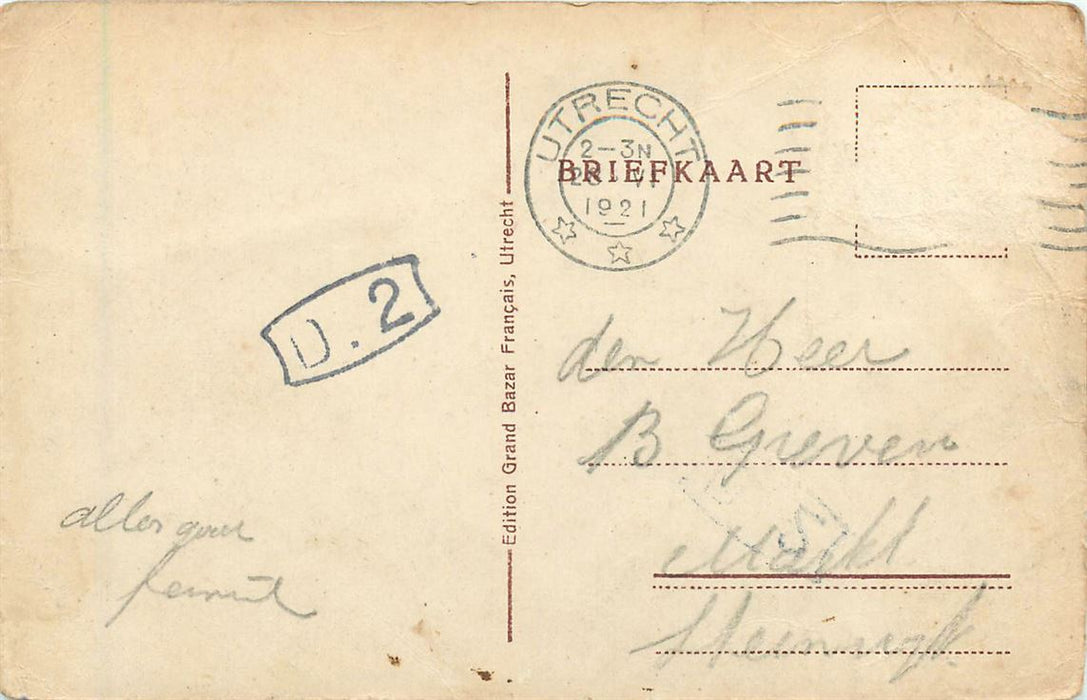 UTRECHT
2-3N
1921
BRIEFKAART
D.2
Edition Grand Bazar Français, Utrecht
den Heer
B Greven
Markt
alles goed